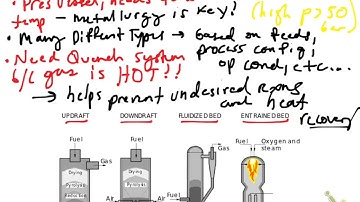 Pres Vessel, needs to
temp - metallurgy is key! (high p > 50 bar)
• Many Different Types → based on feeds,
process config,
• Need Quench system op cond, etc...
b/c gas is HOT!!
→ helps prevent undesired rxns
and heat
recovery
UPDRAFT DOWNDRAFT FLUIDIZED BED ENTRAINED BED
Fuel Fuel Gas Fuel Oxygen and
steam
Gas
Drying Drying
Pyrolysis Pyrolysis Fuel
Reduction Air Air